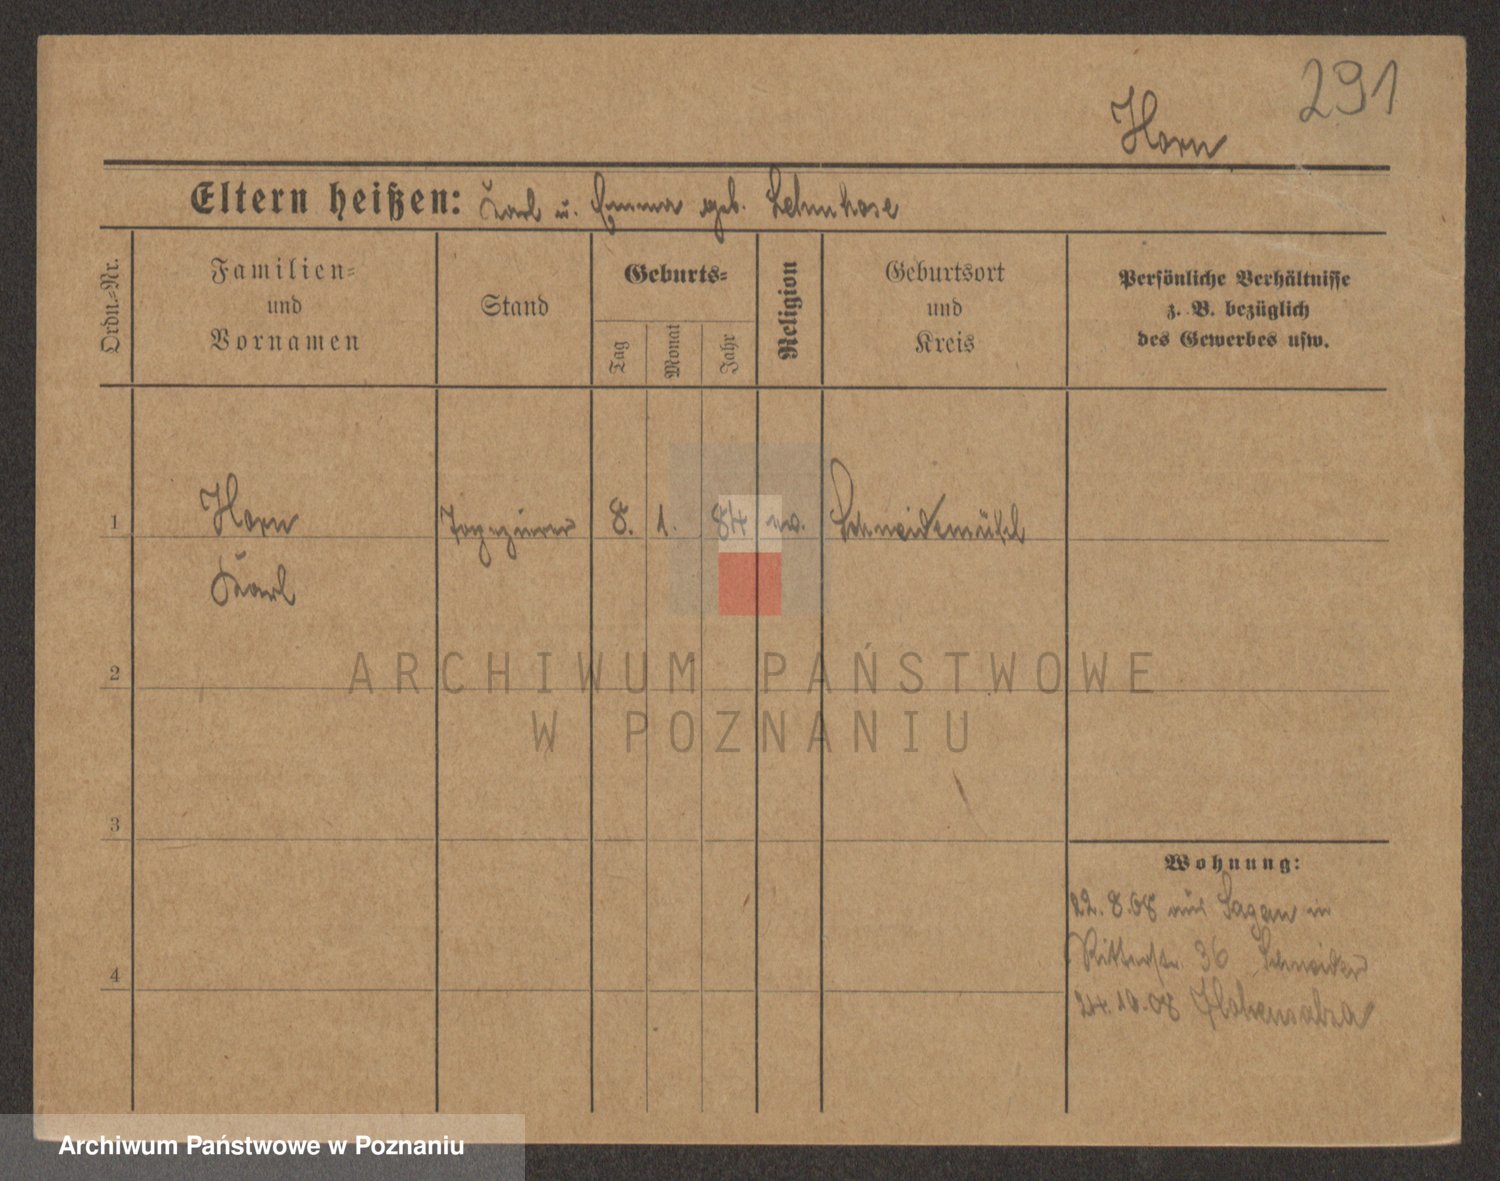 291
Horn
Eltern heißen: Karl u. Emma geb. Lehnhose
Ordn.=Nr.
Familien=
und
Vornamen
Stand
Geburts=
Tag
Monat
Jahr
Religion
Geburtsort
und
Kreis
Persönliche Verhältnisse
z. B. bezüglich
des Gewerbes usw.
1
Horn
Karl
Tapezierer
8.
1.
84
ev.
Schneidemühl
2
3
4
Wohnung:
22. 8. 08 aus Sagan in
Ritterstr. 36 Schneider
24. 10. 08 Hohensalza
ARCHIWUM PAŃSTWOWE
W POZNANIU
Archiwum Państwowe w Poznaniu